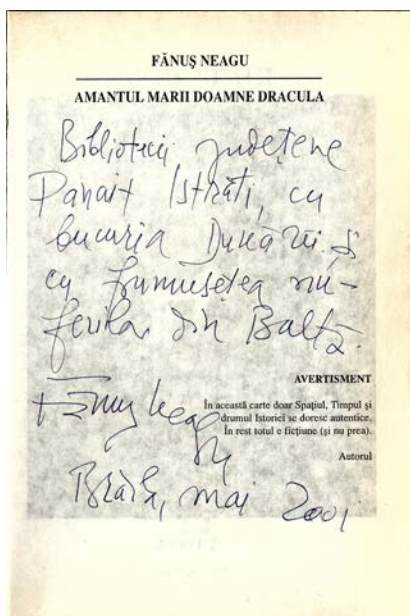 FĂNUŞ NEAGU
AMANTUL MARII DOAMNE DRACULA
Bibliotecii județene
Panait Istrati, cu
bucuria Dunării și
cu frumusețea nu-
ferilor din Baltă.
AVERTISMENT
În această carte doar Spaţiul, Timpul şi
drumul Istoriei se doresc autentice.
În rest totul e ficţiune (şi nu prea).
Autorul
Fănuș Neagu
Brăila, mai 2001